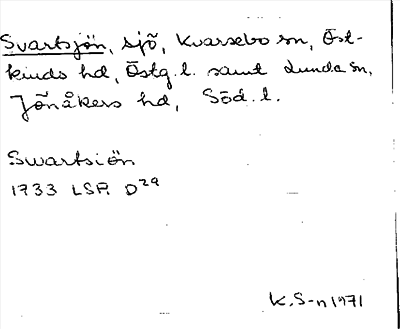 Svartsjön, sjö, Kvarsebo sn, Öst-
kinds hd, Östg.l. samt Lunda sn,
Jönåkers hd, Söd.l.
Swartsiön
1733 LSA D29
K.S-n 1971